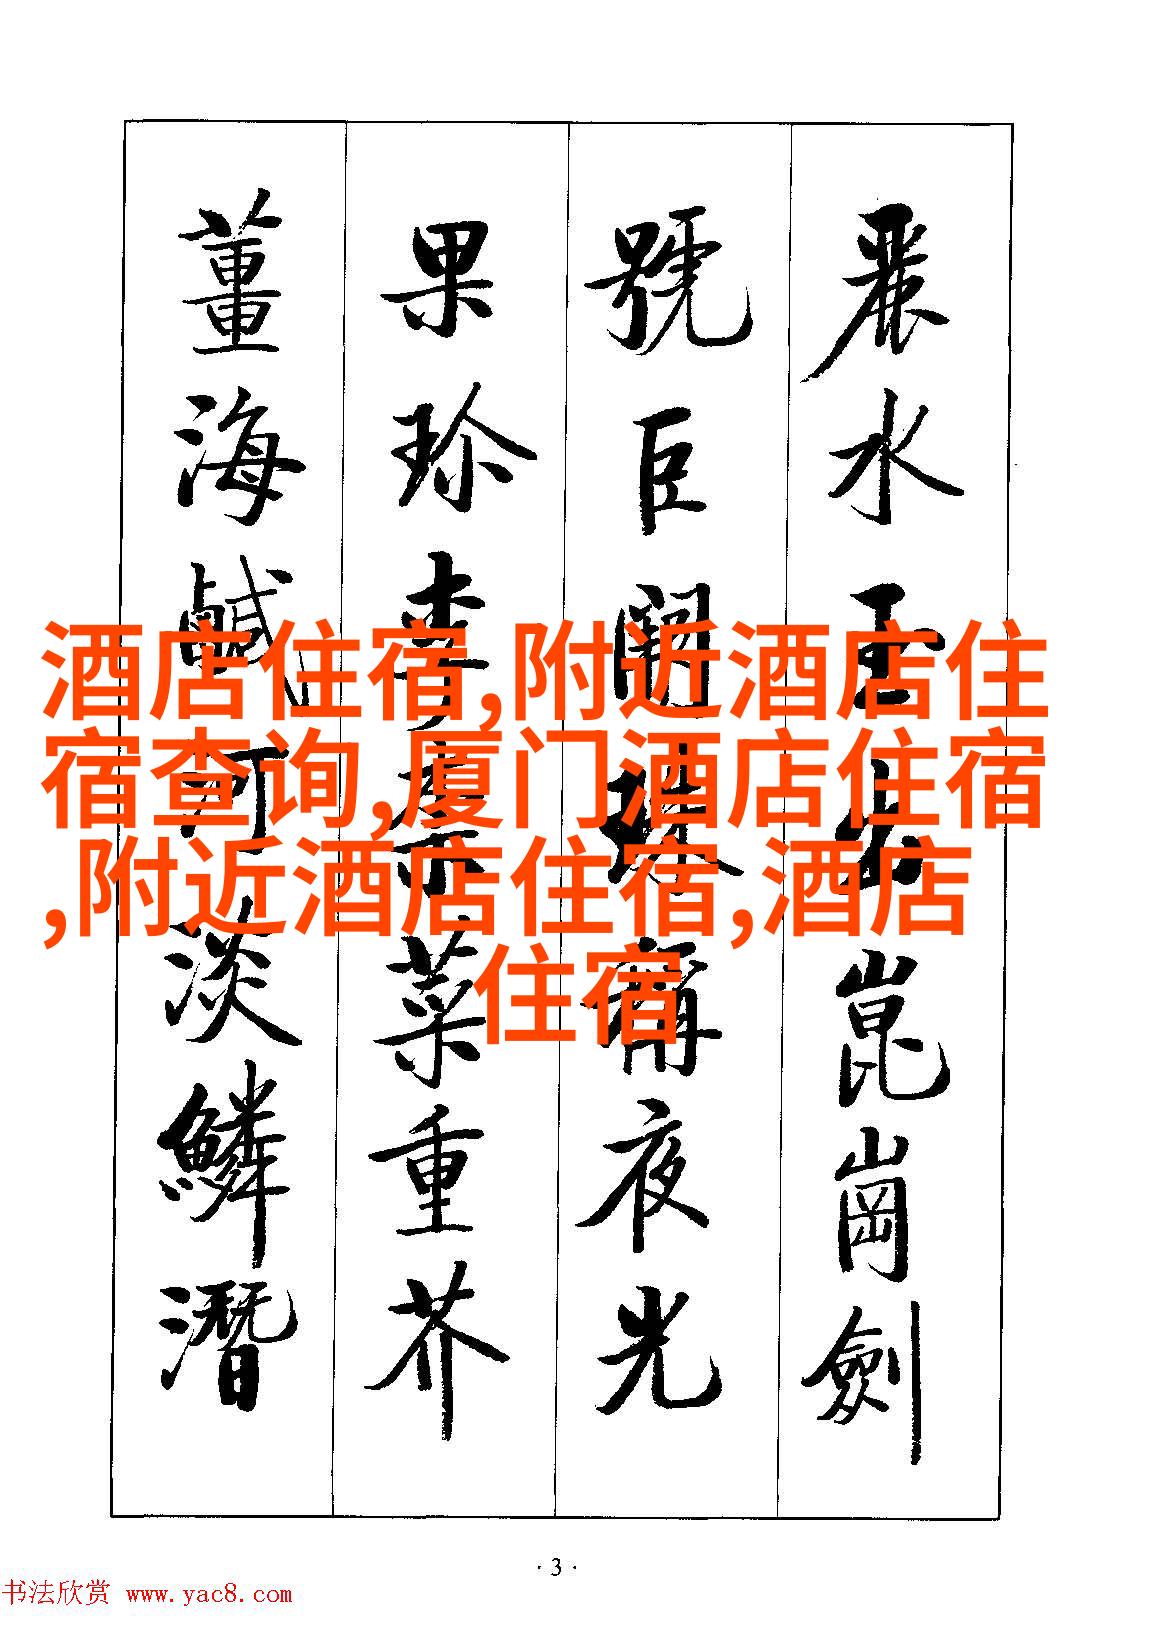 麗水玉出崑崗劍
號巨闕珠稱夜光
果珍李柰菜重芥
薑海鹹河淡鱗潛
酒店住宿,附近酒店住
宿查询,厦门酒店住宿
,附近酒店住宿,酒店
住宿
·3·
书法欣赏 www.yac8.com